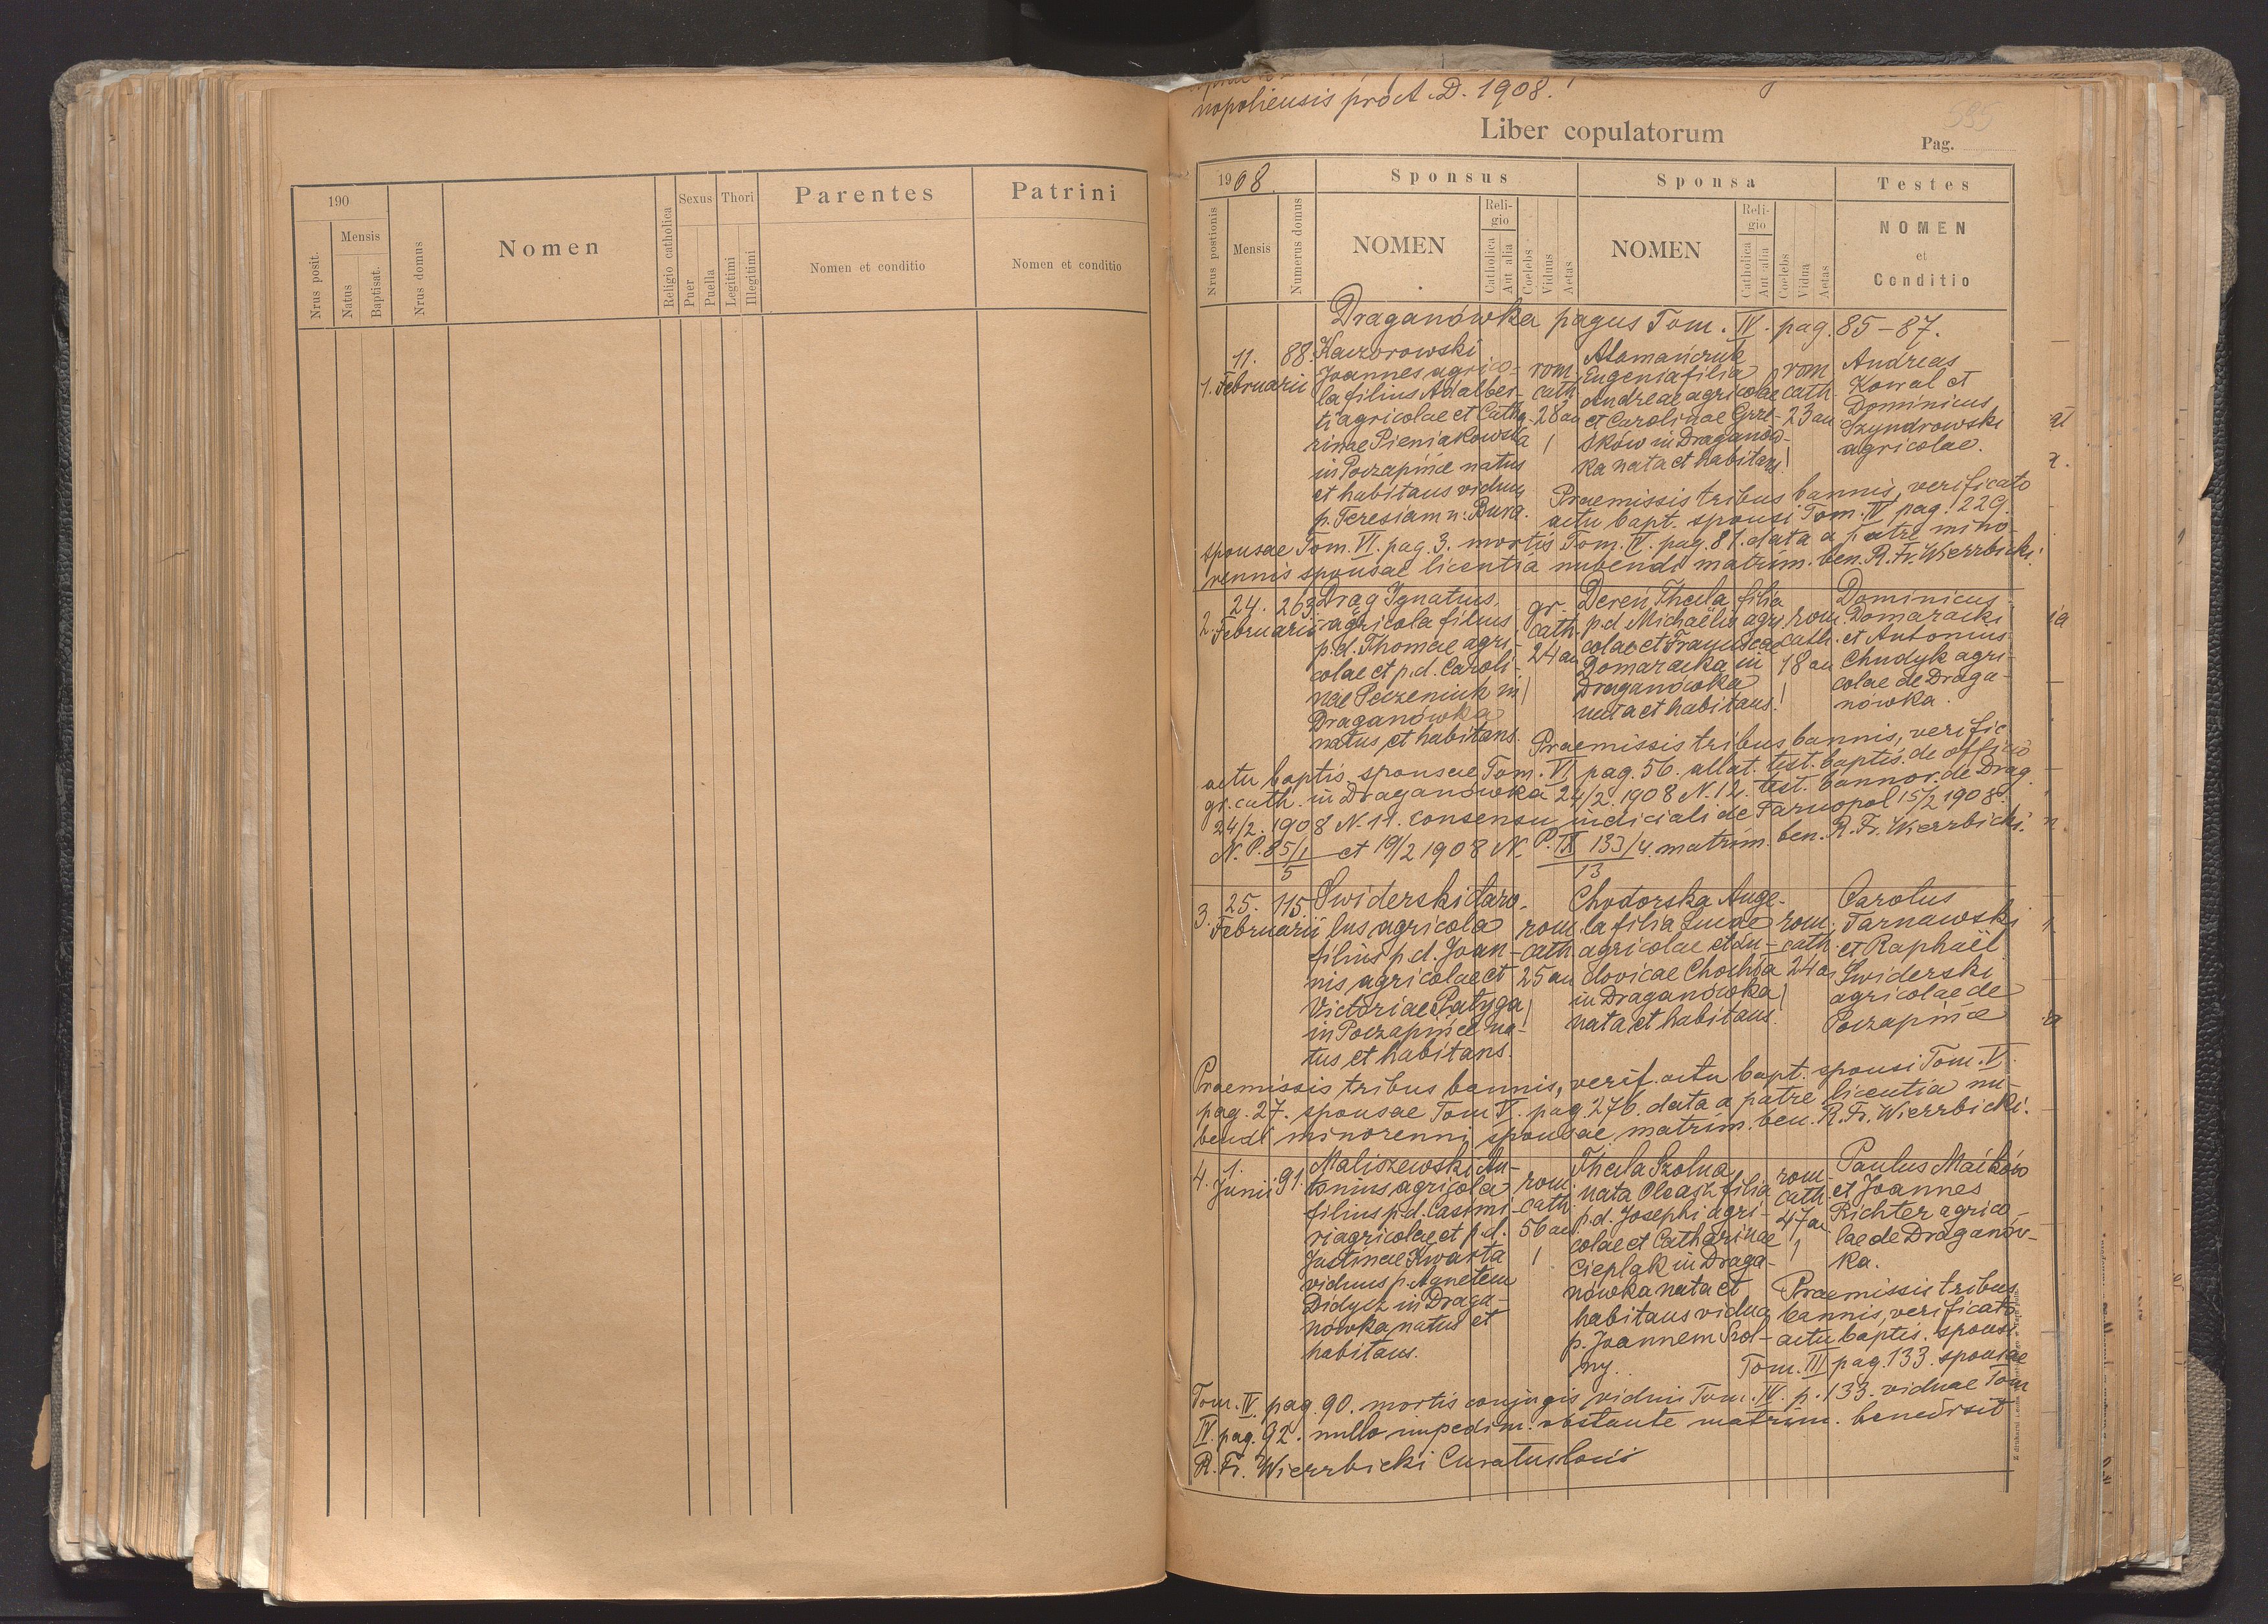 190
Mensis
Nrus posit.
Natus
Baptisat.
Nrus domus
Nomen
Religio catholica
Sexus
Puer
Puella
Thori
Legitimi
Illegitimi
Parentes
Nomen et conditio
Patrini
Nomen et conditio
nopoliensis pro A. D. 1908.
Liber copulatorum
Pag.
1908
Sponsus
Sponsa
Testes
Nrus postionis
Mensis
Numerus domus
NOMEN
Religio
Catholica
Aut alia
Coelebs
Viduus
Aetas
NOMEN
Religio
Catholica
Aut alia
Coelebs
Vidua
Aetas
NOMEN
et
Conditio
Draganówka pagus Tom. IV. pag. 85-87.
1.
11.
Februarii
88.
Kaczorowski
Joannes agrico-
la filius Adalber-
ti agricolae et Catha-
rinae Pieniakowska
in Poczapińce natus
et habitans viduus
p. Teresiam n: Bura.
rom.
cath.
28 an
Atamańczuk
Eugenia filia
Andreae agricolae
et Carolinae Grze-
śków in Draganów-
ka nata et habitans!
rom
cath
23 an
Andreas
Kowal et
Dominicus
Szyndrowski
agricolae.
Praemissis tribus bannis, verificato
actu bapt. sponsi Tom. IV pag. 229.
sponsae Tom. VI. pag. 3. mortis Tom. IV. pag. 81. data a patre mino-
rennis sponsae licentia nubendi matrim. ben. R. Fr. Wierzbicki!
2.
24.
Februarii
263
Drąg Ignatius
agricola filius
p.d. Thomae agri-
colae et p.d. Caroli-
nae Peczeniuk in
Draganówka
natus et habitans.
gr.
cath.
24 an
Dereń Thecla filia
p.d Michaëlis agri
colae et Franciscae
Domaracka in
Draganówka
nata et habitans!
rom.
cath.
18 an
Dominicus
Domaracki
et Antonius
Chudyk agri-
colae de Draga-
nówka.
Praemissis tribus bannis, verific.
actu baptis. sponsae Tom. VI pag. 56. allat. test. baptis. de officio
gr. cath. in Draganówka 24/2. 1908 N. 12. test. bannor. de Drag.
24/2. 1908 N. 11. consensu judiciali de Tarnopol 15/2 1908.
N. P. 85/1 et 19/2 1908 N. P. IX 133/4. matrim. ben. R. Fr. Wierzbicki.
5 13
3.
25.
Februarii
115.
Świderski Caro-
lus agricola
filius p.d. Joan-
nis agricolae et
Victoriae Patyga
in Poczapińce na-
tus et habitans.
rom
cath
25 an
Chodorska Ange-
la filia Lucae
agricolae et Lu-
dovicae Chochla
in Draganówka
nata et habitans!
rom.
cath.
24 a
Carolus
Tarnawski
et Raphaël
Świderski
agricolae de
Poczapińce
Praemissis tribus bannis, verif. actu bapt. sponsi Tom. V.
pag. 27. sponsae Tom V. pag. 276. data a patre licentia nu-
bendi minorenni sponsae matrim. ben. R. Fr. Wierzbicki.
4.
1.
Junii
91.
Maliszewski An-
tonius agricola
filius p.d. Casimi-
ri agricolae et p.d.
Justinae Kwarta
viduus p. Agnetem
Didycz in Draga-
nówka natus et
habitans.
rom.
cath.
56 an
Thecla Szolna
nata Oleasz filia
p.d. Josephi agri-
colae et Catharinae
Cieplak in Draga-
nówka nata et
habitans vidua
p. Joannem Szol-
ny.
rom-
cath.
47 an
Paulus Maików
et Joannes
Richter agrico-
lae de Draganów-
ka.
Praemissis tribus
bannis, verificato
actu baptis. sponsi
Tom. III pag. 133. sponsae
Tom. IV. pag. 90. mortis conjugis vidui Tom. IV. p. 133. viduae Tom
IV. pag. 92. nullo impedim. obstante matrim. benedixit
R. Fr. Wierzbicki Curatus loci